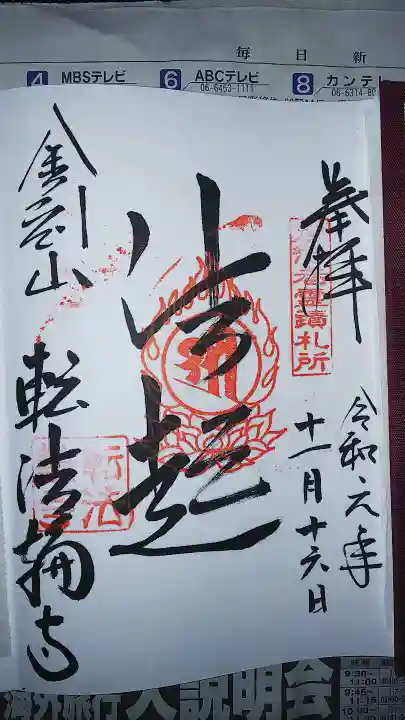 毎日新
4 MBSテレビ
6 ABCテレビ
06-6453-1111
8 カンテレ
奉拝
霊蹟札所
令和六年
十一月十六日
法起
金剛山
転法輪寺
海外旅行 大説明会
9:30~
11:00
9:45~
11:15